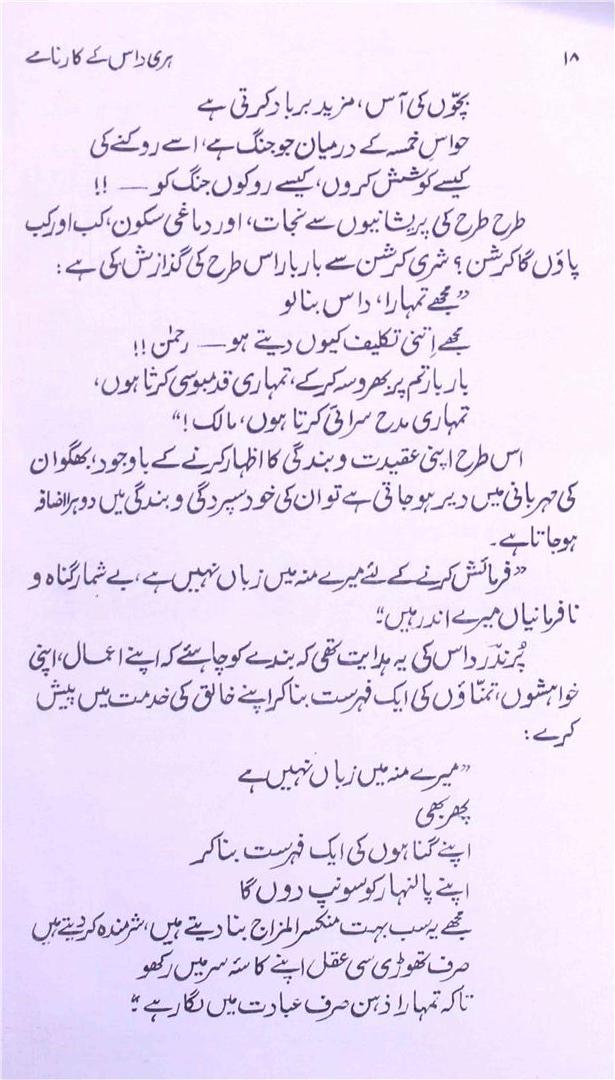 ۱۸
ہری داس کے کارنامے
بچّوں کی آس، مزید برباد کرتی ہے
حواسِ خمسہ کے درمیان جو جنگ ہے، اسے روکنے کی
کیسے کوشش کروں، کیسے روکوں جنگ کو — !!
طرح طرح کی پریشانیوں سے نجات، اور دماغی سکون، کب اور کب
پاؤں گا کرشن؟ شری کرشن سے بار بار اس طرح کی گذارش کی ہے:
”مجھے تمہارا، داس بنا لو
مجھے اِتنی تکلیف کیوں دیتے ہو — رحمٰن !!
بار بار تم پر بھروسہ کرکے، تمہاری قدمبوسی کرتا ہوں،
تمہاری مدح سرائی کرتا ہوں، مالک!“
اس طرح اپنی عقیدت و بندگی کا اظہار کرنے کے باوجود، بھگوان
کی مہربانی میں دیر ہو جاتی ہے تو ان کی خود سپردگی و بندگی میں دوہرا اضافہ
ہو جاتا ہے۔
”فرمائش کرنے کے لئے میرے منہ میں زباں نہیں ہے، بے شمار گناہ و
نافرمانیاں میرے اندر ہیں“
پُرندَر داس کی یہ ہدایت تھی کہ بندے کو چاہئے کہ اپنے اعمال، اپنی
خواہشوں، تمنّاؤں کی ایک فہرست بنا کر اپنے خالق کی خدمت میں پیش
کرے:
”میرے منہ میں زباں نہیں ہے
پھر بھی
اپنے گناہوں کی ایک فہرست بنا کر
اپنے پالنہار کو سونپ دوں گا
مجھے یہ سب بہت منکسر المزاج بنا دیتے ہیں، شرمندہ کر دیتے ہیں
صرف تھوڑی سی عقل اپنے کاسۂ سر میں رکھو
تاکہ تمہارا ذہن صرف عبادت میں لگا رہے“